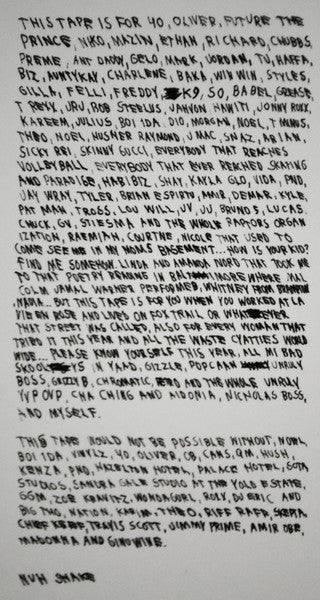 THIS TAPE IS FOR 40, OLIVER, FUTURE THE
PRINCE, NIKO, MAZIN, ETHAN, RICHARD, CHUBBS,
PREME, ANT DADDY, GELO, MARK, JORDAN, TU, HAFFA,
BIZ, AUNTY KAY, CHARLENE, BAKA, WIN WIN, STYLES,
GILLA, FELLI, FREDDY, K9, SO, BABEL, GREASE,
T REXX, JRU, ROB STEELUS, JAHVON HAWITT, JONNY ROXX,
KAREEM, JULIUS, BOI 1DA, DIO, MORGAN, NOEL, T MINUS,
THEO, NOEL, HUSHER RAYMOND, J MAC, SNAZ, ARIAN,
SICKY REI, SKINNY GUCCI, EVERYBODY THAT REACHES
VOLLEYBALL, EVERYBODY THAT EVER REACHED SKATING
AND PARADISE, HABIBIZ, SHAY, KAYLA GLO, VIDA, PND,
JAY WRAY, TYLER, BRIAN ESPIRTU, AMIR, DEMAR, KYLE,
PAT MAN, TROSS, LOU WILL, JV, JU, BRUNOS, LUCAS,
CHUCK, GV, STIESMA AND THE WHOLE RAPTORS ORGAN
IZATION, RAEMIAH, COURTNE, NICOLE THAT USED TO
COME SEE ME IN MY MOMS BASEMENT... HOW IS YOUR KID?
FIND ME SOMEHOW. LINDA AND AMANDA WORD THAT TOOK ME
TO THAT POETRY READING IN BALTIMORE WHERE MAL
COLM JAMAL WARNER PERFORMED, WHITNEY FROM
... BUT THIS TAPE IS FOR YOU WHEN YOU WORKED AT LA
VIE EN ROSE AND LIVED ON FOX TRAIL OR WHATEVER
THAT STREET WAS CALLED, ALSO FOR EVERY WOMAN THAT
TRIED IT THIS YEAR AND ALL THE WASTE CYATTIES WORLD
WIDE... PLEASE KNOW YOURSELF THIS YEAR, ALL MI BAD
YS IN YAAD, GIZZLE, POPCAAN UNRULY
BOSS, CHROMATIC, AND THE WHOLE UNRULY
CHA CHING AND AIDONIA, NICHOLAS BOSS,
AND MYSELF.
THIS TAPE WOULD NOT BE POSSIBLE WITHOUT, NOEL,
BOI 1DA, VINYLZ, 40, OLIVER, CB, CANS, QM, HUSH,
KENZA, PND, HAZELTON HOTEL, PALACE HOTEL, SOTA
STUDIOS, SANDRA GALE STUDIO AT THE YOLO ESTATE,
GGM, ZOE KRAVITZ, WONDAGURL, ROXX, DU ERIC AND
BIG TWO, NATION, KARIM, THEO, RIFF RAFF, SKEPTA,
CHIEF KEEF, TRAVIS SCOTT, JIMMY PRIME, AMIR OBE,
MADONNA AND GINUWINE.
NUH SHAKE